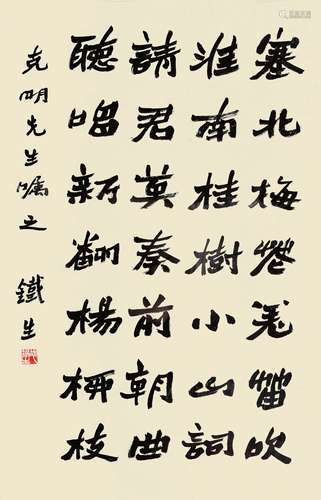 塞北梅花羌笛吹
淮南桂樹小山詞
請君莫奏前朝曲
聽唱新翻楊柳枝
克明先生囑之 鐵生